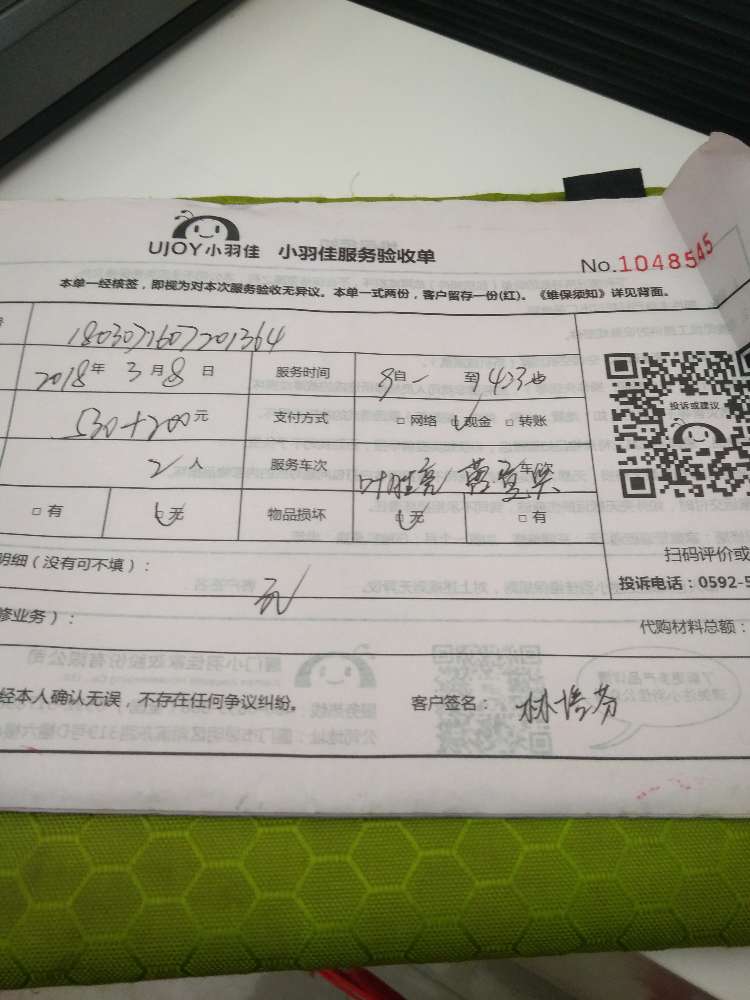 UJOY小羽佳 小羽佳服务验收单
No.1048545
本单一经核签，即视为对本次服务验收无异议。本单一式两份，客户留存一份(红)。《维保须知》详见背面。
1803071607201364
2018年 3月 8日 服务时间 自 到
530+200元 支付方式 □ 网络 □ 现金 □ 转账
投诉或建议
2人 服务车次 叶胜亮 车/次
□ 有 □ 无 物品损坏 □ 无 □ 有
明细（没有可不填）：
无
扫码评价或
投诉电话：0592-5
修业务）：
代购材料总额：
经本人确认无误，不存在任何争议纠纷。
客户签名： 林培芬